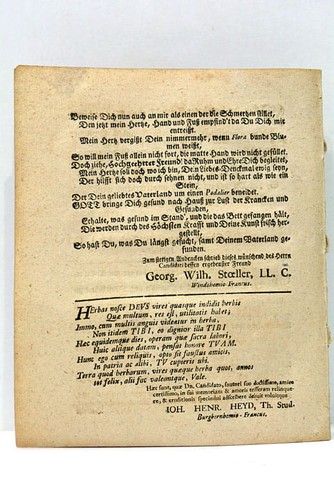 Beweise Dich nun auch an mir als einen der die Schmertzen stillet,
Den jetzt mein Hertze, Hand und Fuß empfind't da Du Dich mir
entreißt.
Mein Hertz vergißt Dein nimmermehr, wenn Flora bunde Blu-
men weißt,
So will mein Fuß allein nicht fort, die matte Hand wird nicht gefüllet.
Doch ziehe, Hochgeehrter Freund! da Ruhm und Ehre Dich begleitet,
Mein Hertze soll doch wo ich bin, Dein Liebes-Denckmal ewig seyn,
Der hilfft sich doch durch sehnen nicht, und ist so hart als wie ein
Stein,
Der Dein geliebtes Vaterland um einen Podalier beneidet.
GOTT bringe Dich gesund nach Hauß zur Lust der Krancken und
Gesunden,
Erhalte, was gesund im Stand', und die das Bett gefangen hält,
Die werden durch des Höchsten Krafft und Deine Kunst frisch her-
gestellt,
So hast Du, was Du längst gesucht, samt Deinem Vaterland ge-
funden.
Zum stetigen Andencken schrieb dieses wünschend des Herrn
Candidati dessen ergebenster Freund
Georg. Wilh. Stœller, LL. C.
Windshemio-Francus.
Herbas nosce DEVS vires quasque indidit herbis
Quæ multum, res est, utilitatis habet;
Immo, cum multis anguis videatur in herba,
Non itidem TIBI, eo dignior illa TIBI
Hæc equidem que dies, operam quæ sacra labori,
Huic aliquæ datam, pensat honore TVAM.
Hunc ego cum reliquis, opto sit faustus amicis,
In patria ac alibi, TV cupierit ubi.
Terra quod herbarum, vires queque herba quot, annos
tot felix, alii sic valeantque, Vale.
Hæc sunt, quæ Dn. Candidato, fautori suo doctissimo, amico
certissimo, in sui memoriam & amoris tesseram reliquæ-
que, & eruditionis specimini adscribere debuit voluitque
JOH. HENR. HEYD, Th. Stud.
Burgbernhemio-Francus.